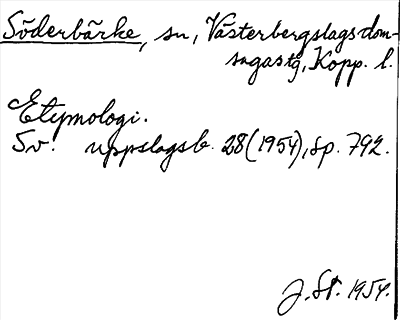 Söderbärke, sn, Västerbergslags dom-
sagastg, Kopp. l.
Etymologi.
Sv. uppslagsb. 28(1954), sp. 792.
J. St. 1954.